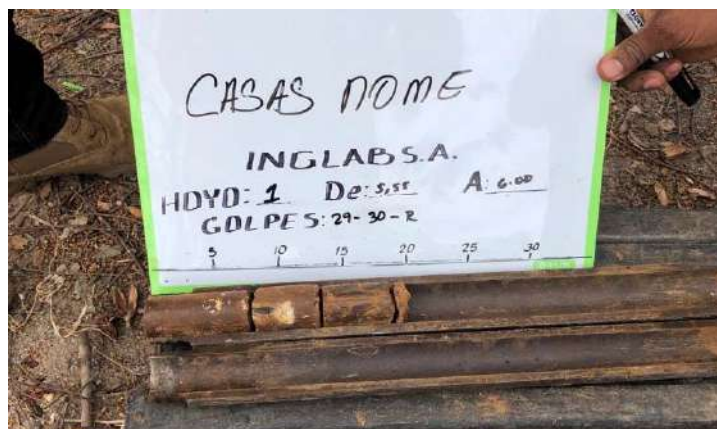 CASAS NOME
INGLAB S.A.
HOYO: 1 De: 5,55 A: 6.00
GOLPES: 29-30-R
5 10 15 20 25 30